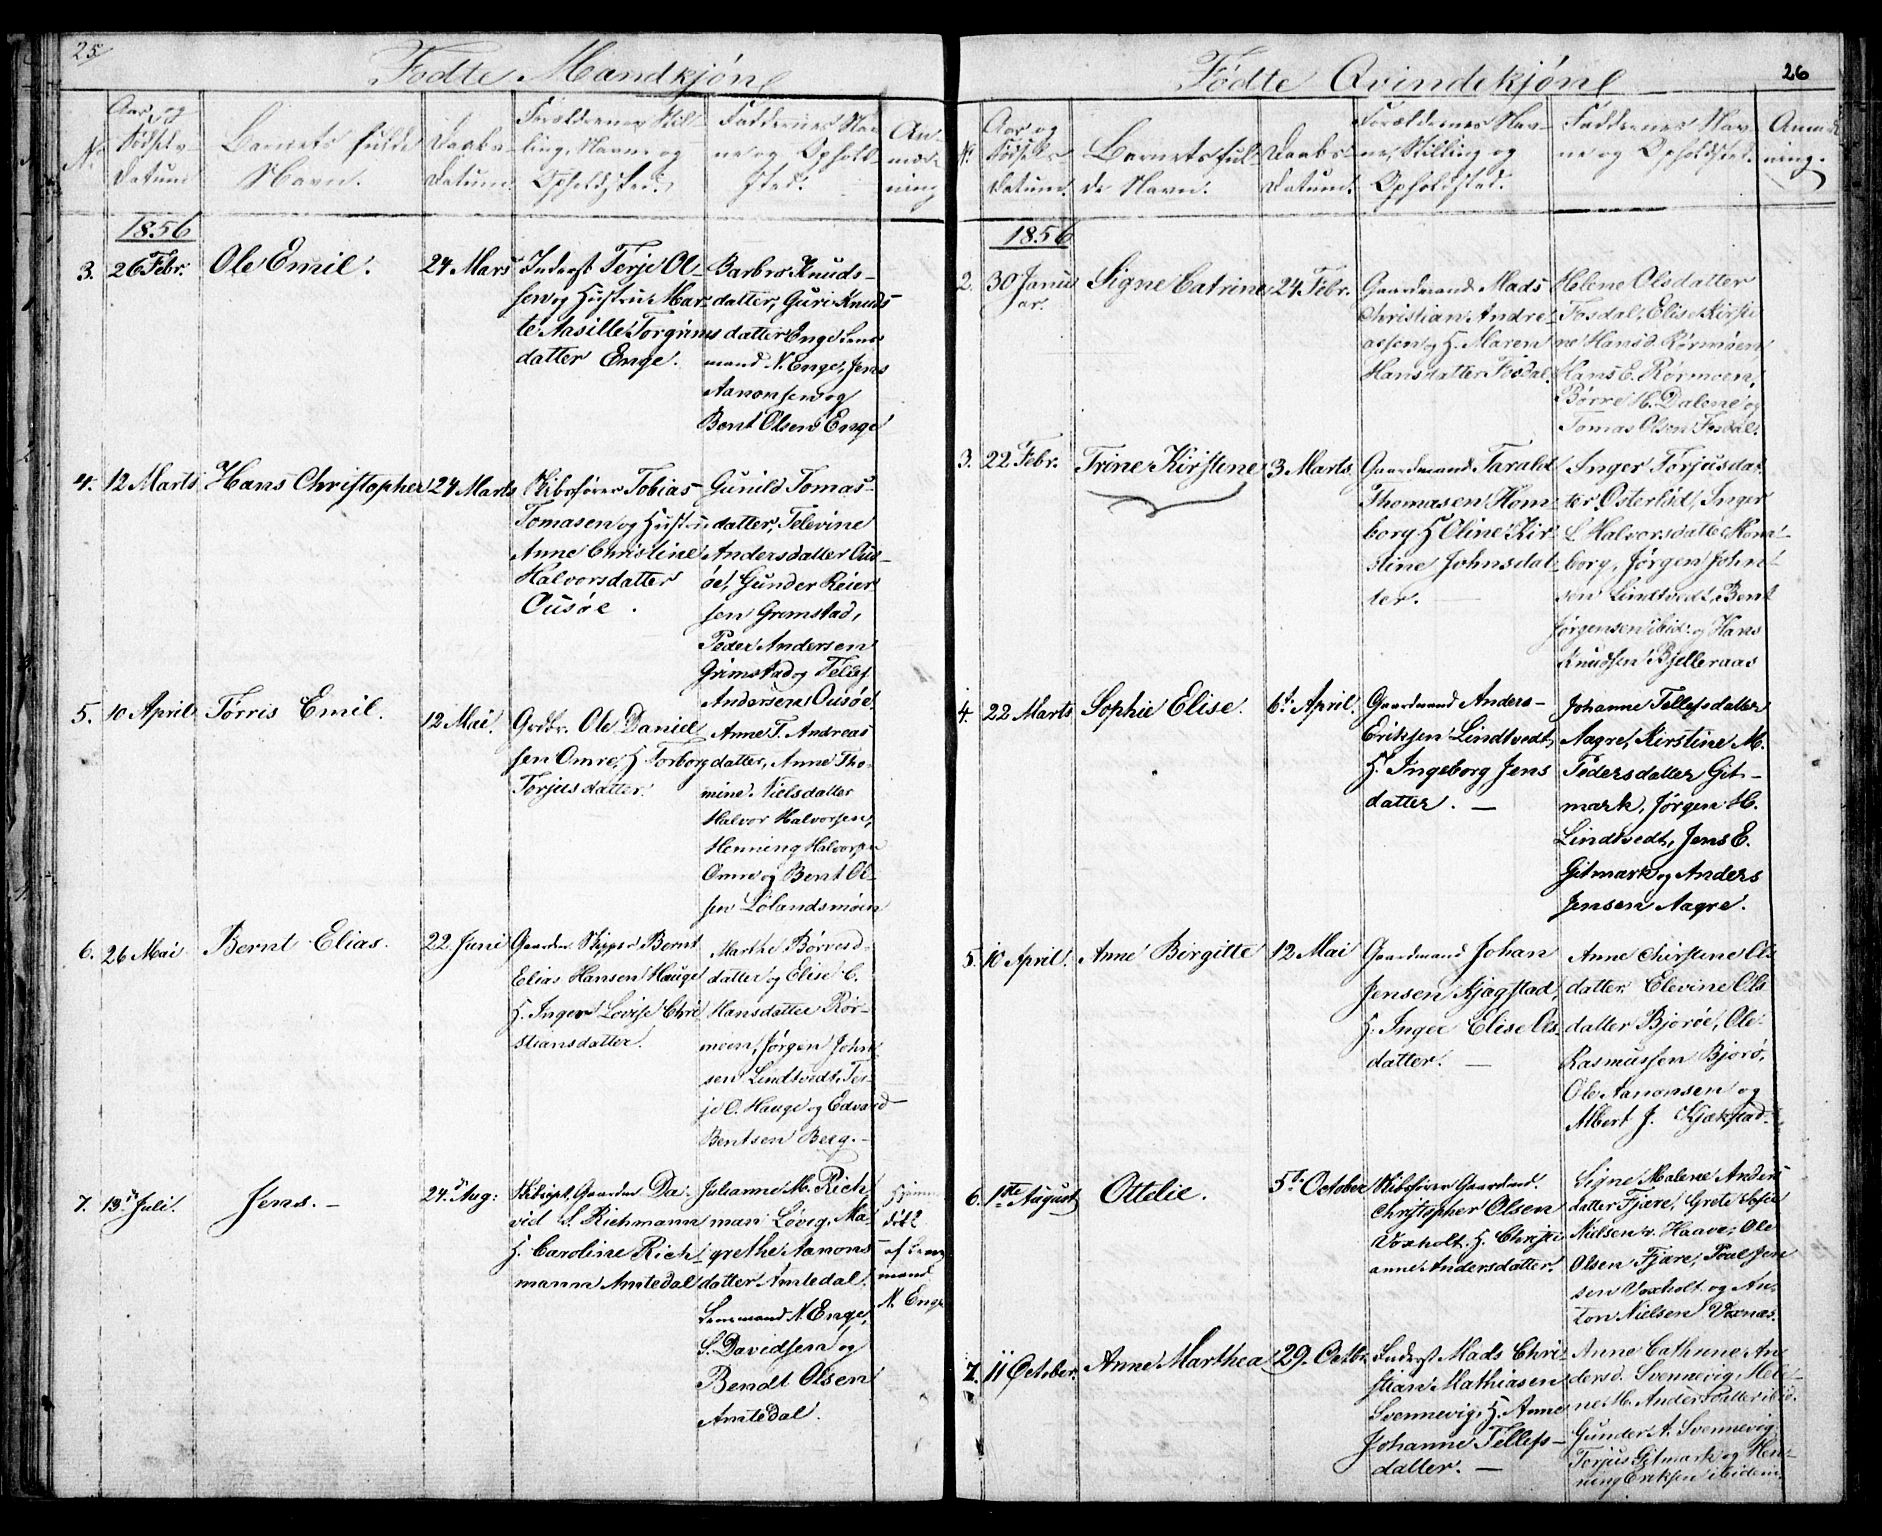 25
Fødte Mandkjøn
No
Aar og
Fødsels
Datum
Barnets fulde
Navn.
Daabs
Datum.
Forældrenes Stil-
ling, Navne og
Opholdssted.
Faddernes Nav-
ne og Ophold-
sted.
An-
mærk
ning
1856
3.
26 Febr.
Ole Emil.
24 Mars
Inderst Terje Ol-
sen og Hustru Mar-
te Aasille Torgrims
datter Enge.
Barbro Knuds-
datter, Guri Knuds
datter Enge Lens
mand N. Enge, Jens
Aanonsen og
Bent Olsen Enge
4.
12 Marts
Hans Christopher
24 Marts
Skibsfører Tobias
Tomasen og Hustru
Anne Christine
Halvorsdatter
Ousøe.
Gunild Tomas-
datter, Televine
Andersdatter Ous-
øe, Gunder Reier
sen Grimstad,
Peder Andersen
Grimstad og Tellef
Andersen Ousøe.
5.
10 April
Tørris Emil.
12 Mai.
Grdbr. Ole Daniel
sen Omre, H Torborg
Torjusdatter.
Anne T. Andreas
datter, Anne Tho-
mine Nielsdatter
Halvor Halvorsen,
Henning Halvorsen
Omre og Bent Ol-
sen Lølandsmoen
6.
26 Mai
Bernt Elias.
22 Juni
Gaardm. Skipper Bernt
Elias Hansen Hauge
H. Inger Lovise Chri
stiansdatter.
Marthe Børresd-
datter og Elise C.
Hansdatter Rør-
moen, Jørgen John
sen Lindtvedt, Ter-
je O. Hauge og Edvard
Bentsen Berg.-
7.
13de Juli.
Jens. -
24de Aug:
Skibscpt. Gaardm. Da-
vid S. Richmann
H. Caroline Rich
mann Amtedal
Julianne M. Rich
man Løvig, Ma-
grethe Aanons
datter Amtedal.
Lensmand N. Enge,
S. Davidsen og
Bendt Olsen
Amtedal.
Hjemme
døbt
af Lens
mand
N. Enge
Fødte Qvindekjøn
26
No.
Aar og
Fødsels
Datum.
Barnets ful-
de Navn.
Daabs-
Datum.
Forældrenes Nav-
ne, Stilling og
Opholdssted.
Faddernes Nav-
ne og Opholdsted.
Anmærk
ning.
1856
2.
30 Janu
ar.
Signe Catrine
24 Febr.
Gaardmand Mads
Christian Andre-
assen og H. Maren
Hansdatter Fosdal.
Helene Olsdatter
Fosdal, Elise Kirsti
ne Hansd. Rørmoen
Hans E. Rørmoen,
Børre H. Dalene og
Tomas Olsen Fosdal.
3.
22 Febr.
Trine Kirstene
3 Marts.
Gaardmand Tarald
Thomasen Hom-
borg H Oline Kir-
stine Johnsdat-
ter.
Inger Torjusdat
ter Østerlid, Inger
L Halvorsdatte
borg, Jørgen John-
sen Lindtvedt, Bent
Jørgensen ibid. og Hans
Knudsen Bjelleraas
4.
22 Marts
Sophie Elise.
6te April.
Gaardmand Anders-
Eriksen Lindtvedt,
H. Ingeborg Jens
datter. -
Johanne Tellefsdatter
Aagre, Kirstine M.
Pedersdatter Git-
mark, Jørgen H.
Lindtvedt, Jens E.
Gitmark og Anders
Jensen Aagre.
5.
10 April.
Anne Birgitte
12 Mai
Gaardmand Johan
Jensen Kjægstad,
H. Inger Elise Ols
datter. -
Anne Chirstene Ols
datter. Elevine Ols
datter Bjorøe, Ole
Rasmussen Bjorø,
Ole Aanonsen og
Albert J. Kjækstad.
6.
1ste August
Ottelie.
5te October
Skibsfører Gaardmd.
Christopher Olsen
Voxholt. H. Christi
anne Andersdatter.
Signe Malene Anders
datter Fjære, Grete Sofie
Nielsen v. Haave, Ole
Olsen Fjære, Poul Jen
sen Voxholt og An-
ton Nielsen Voxnæs.
7.
11 October.
Anne Marthea
29. Octbr.
Inderst Mads Chri-
stian Mathiasen
Svennevig, H. Anne
Johanne Tellefs-
datter. -
Anne Cathrine An
dersd. Svennevig, Meli-
ne M. Andersdatter ibid.
Gunder A. Svennevig
Torjus Gitmark og Hen-
ning Eriksen ibidem